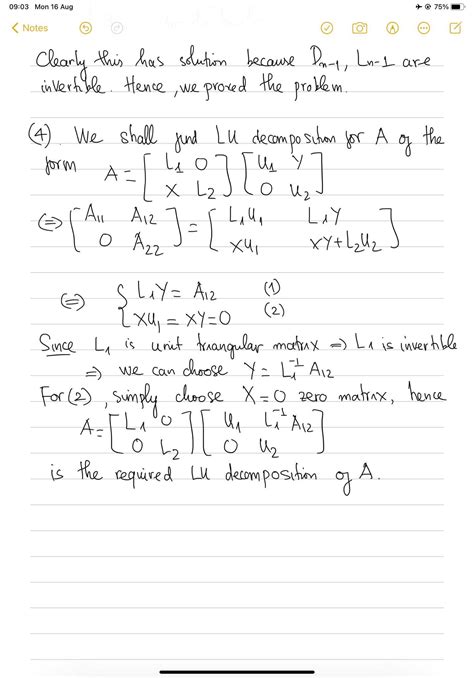 09:03 Mon 16 Aug
75%
Notes
Clearly this has solution because Dn-1, Ln-1 are
invertible. Hence, we proved the problem.
(4). We shall find LU decomposition for A of the
form A = [L1 0; X L2] [U1 Y; 0 U2]
(=) [A11 A12; 0 A22] = [L1U1 L1Y; XU1 XY+L2U2]
(=) { L1Y = A12 (1)
XU1 = XY=0 (2)
Since L1 is unit triangular matrix => L1 is invertible
=> we can choose Y = L1^-1 A12
For (2), simply choose X=0 zero matrix, hence
A = [L1 0; 0 L2] [U1 L1^-1 A12; 0 U2]
is the required LU decomposition of A.